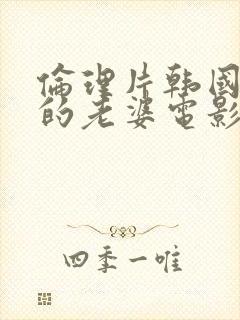 倫理片韩國
的老婆電影
四季一唯